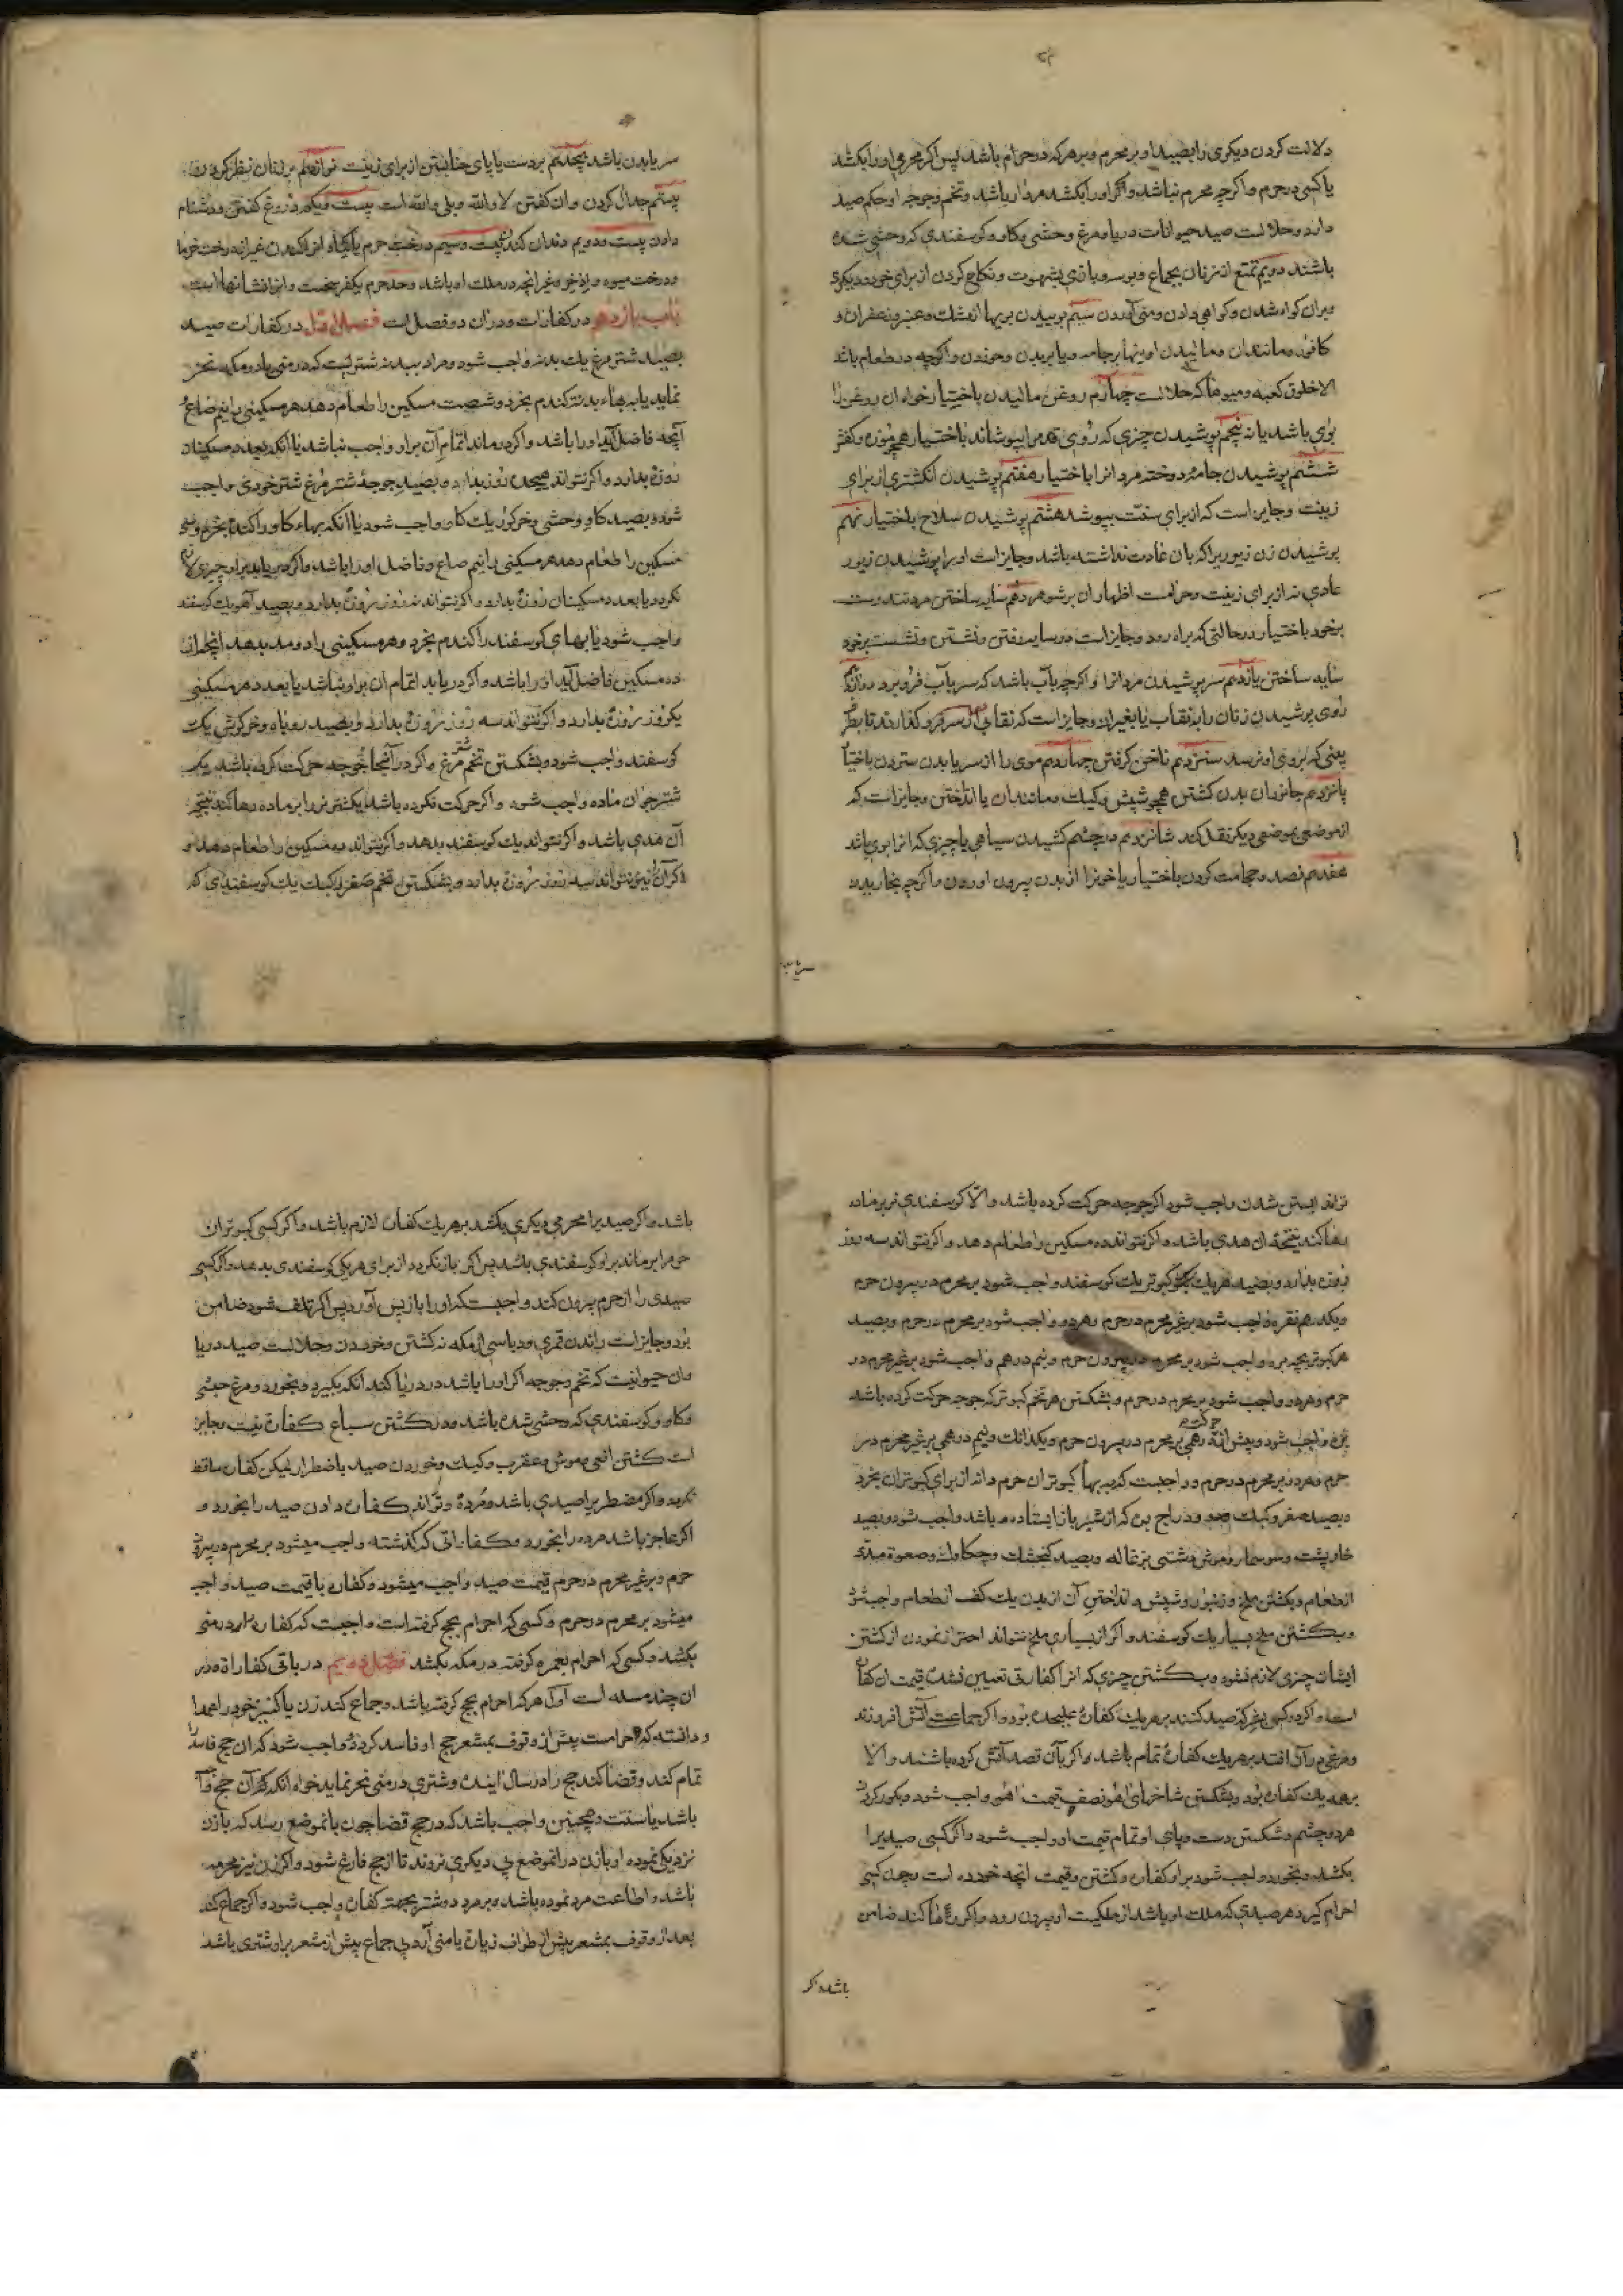 دلالت کردن دیکری را بصید او بر محرم و بر هر که در حرام باشد پس اکر محرمی او را بکشد
یا کسی در حرم و اکرچه محرم نباشد و اکر او را بکشد مردار باشد و تخم و جوجه او حکم صید
دارد و حلالست صید حیوانات دریا و مرغ وحشی و کاو و کوسفندی که وحشی شده
باشند دویم تمتع از زنان بجماع و بوسه و بازی بشهوت و نکاح کردن از برای خود و دیکری
و بران کواه شدن و کواهی دادن و منی آوردن سیم بوییدن بویها از مشک و عنبر و زعفران و
کافور و مانند ان و مالیدن اینها بر جامه و یا بر بدن و خوردن و اکرچه در طعام باشد
الا خلوق کعبه و میوها که حلالست چهارم روغن مالیدن باختیار خواه ان روغن را
بوی باشد یا نه پنجم پوشیدن چیزی که روی قدم را بپوشاند باختیار همچو موزه و کفش
ششم پوشیدن جامه دوخته مردانرا باختیار هفتم پوشیدن انکشتری از برای
زینت و جایز است که از برای سنت بپوشد هشتم پوشیدن سلاح باختیار نهم
پوشیدن زن زیوریرا که بان عادت نداشته باشد و جایز است او را پوشیدن زیور
عادی نه از برای زینت و حرامست اظهار ان بر شوهر دهم سایه ساختن مرد تندرست
بر خود باختیار در حالتی که براه رود و جایز است در سایه رفتن و نشستن و نشست بر خود
سایه ساختن یازدهم سر پوشیدن مردانرا و اکرچه بآب باشد که سر بآب فرو برد دوازدهم
روی پوشیدن زنان را بنقاب یا بغیر ان و جایز است که نقابی از سر فرو کذارند تا بطرف
بینی که بروی او نرسد سیزدهم ناخن کرفتن چهاردهم موی را از سر یا بدن ستردن باختیار
پانزدهم جانوران بدن کشتن همچو شپش و کیک و مانند ان یا انداختن و جایز است که
از موضعی بموضعی دیکر نقل کند شانزدهم در چشم کشیدن سیاهی یا چیزی که انرا بوی باشد
هفدهم فصد و حجامت کردن باختیار یا خونرا از بدن بیرون اوردن و اکرچه بخاریدن
سر یا بدن
سر یا بدن باشد هیجدهم بر دست یا پای حنا بستن از برای زینت نوازدهم بر زنان نظر کردن
بیستم جدال کردن و ان کفتن لا والله و بلی والله است بیست و یکم دروغ کفتن و دشنام
دادن بیست و دویم دندان کندن بیست و سیم درخت حرم یا کیاه انرا کندن غیر از درخت خرما
و درخت میوه و اذخر و غیر انچه در ملک او باشد و حد حرم یکفرسخست و انرا نشانها است
باب یازدهم در کفارات و دران دو فصل است فصل اول در کفارات صید
بصید شترمرغ یک بدنه واجب شود و مراد ببدنه شتریست که در منی یا در مکه نحر
نماید یا به بهاء بدنه کندم بخرد و شصت مسکین را طعام دهد هر مسکینی را نیم صاع و
آنچه فاضل آید او را باشد و اکر درماند اتمام آن بر او واجب نباشد یا آنکه بعدد مسکینان
روزه بدارد و اکر نتواند هیجده روز بدارد و بصید جوجۀ شترمرغ شتر خوردی واجب
شود و بصید کاو وحشی و خر کور یک کاو واجب شود یا آنکه بهاء کاو را کندم بخرد و سی
مسکین را طعام دهد هر مسکینی را نیم صاع و فاضل او را باشد و اکر دریابد بر او چیزی لازم
نکردد یا بعدد مسکینان روزه بدارد و اکر نتواند نه روز روزه بدارد و بصید آهو یک کوسفند
واجب شود یا بهای کوسفند را کندم بخرد و هر مسکینی را دو مد بدهد آنچه از
ده مسکین فاضل آید او را باشد و اکر دریابد اتمام ان بر او نباشد یا بعدد هر مسکینی
یکروز روزه بدارد و اکر نتواند سه روز روزه بدارد و بصید روباه و خرکوش یک
کوسفند واجب شود و بشکستن تخم شترمرغ و اکر در آنجا جوجه حرکت کرده باشد یک
شتر جوان ماده واجب شود و اکر حرکت نکرده باشد یکشتر نر را بر ماده رها کند نتیجۀ
آن هدی باشد و اکر نتواند یک کوسفند بدهد و اکر نتواند ده مسکین را طعام دهد و
اکر آن نیز نتواند سه روز روزه بدارد و بشکستن تخم صغیر کبک یک کوسفندی که
تواند ابستن شدن واجب شود اکر جوجه حرکت کرده باشد و الا کوسفندی نر بر ماده
رها کند نتیجۀ ان هدی باشد و اکر نتواند ده مسکین را طعام دهد و اکر نتواند سه روز
روزه بدارد و بصید هر یک کبوتر یک کوسفند واجب شود بر محرم در بیرون حرم
و یکدرهم نقره واجب شود بر غیر محرم در حرم و هر دو واجب شود بر محرم در حرم و بصید
هر کبوتر بچه بره واجب شود بر محرم در بیرون حرم و نیم درهم واجب شود بر غیر محرم در
حرم و هر دو واجب شود بر محرم در حرم و بشکستن هر تخم کبوتر که جوجه حرکت کرده باشد
بره واجب شود و پیش از حرکت درهمی بر محرم در بیرون حرم و یکدانک و نیم درهمی بر غیر محرم در
حرم و هر دو بر محرم در حرم و واجبست که به بهاء کبوتران حرم دانه از برای کبوتران بخرد
و بصید صغیر و کبک و دراج بره که از شیر باز ایستاده باشد واجب شود و بصید
خارپشت و سوسمار و موش دشتی بزغاله و بصید کنجشک و چکاوک و صعوه مدی
از طعام و بکشتن ملخ و زنبور و شپش و انداختن آن از بدن یک کف از طعام واجب شود
و بکشتن ملخ بسیار یک کوسفند و اکر از بسیاری ملخ نتواند احتراز نمودن از کشتن
ایشان چیزی لازم نشود و بکشتن چیزی که انرا کفارتی تعیین نشده قیمت ان کفارت
است و اکر دو کس یا بیشتر صید کنند بر هر یک کفارۀ علیحده بود و اکر جماعت آتش افروزند
و مرغی در آن افتد بر هر یک کفارۀ تمام باشد و اکر بآن قصد آتش کرده باشند و الا
بر همه یک کفارت بود و بشکستن شاخهای آهو نصف قیمت آهو واجب شود و بکور کردن
هر دو چشم و شکستن دست و پای او تمام قیمت او واجب شود و اکر کسی صیدیرا
بکشد و بخورد واجب شود بر او کفارت و کشتن و قیمت انچه خورده است و چون کسی
احرام کیرد هر صیدی که ملک او باشد از ملکیت او بیرون رود و اکر رها نکند ضامن
باشد و اکر
باشد و اکر صیدیرا محرمی دیکری بکشد بر هر یک کفارت لازم باشد و اکر کسی کبوتران
حرم را برماند بر او کوسفندی باشد پس اکر باز نکردد از برای هر یکی کوسفندی بدهد و اکر کسی
صیدی را از حرم بیرون کند واجبست که او را باز پس آورد پس اکر تلف شود ضامن
بود و جایز است راندن قمری و دباسی از مکه نه کشتن و خوردن و حلالست صید دریا
و ان حیوانیست که تخم و جوجه اکر او را باشد در دریا کند آنکه بکیرد و بخورد و مرغ حبشی
و کاو و کوسفندی که وحشی شده باشد و در کشتن سباع کفارت نیست و جایز
است کشتن افعی و موش و عقرب و کیک و خوردن صید باضطرار لیکن کفارت ساقط
نکردد و اکر مضطریرا صیدی باشد و مرده و تواند کفارت دادن صید را بخورد و
اکر عاجز باشد مرده را بخورد و کفاراتی که کذشته واجب میشود بر محرم در بیرون
حرم و بر غیر محرم در حرم قیمت صید واجب میشود و کفاره با قیمت صید واجب
میشود بر محرم در حرم و کسی که احرام بحج کرفته است واجبست که کفاره را در منی
بکشد و کسی که احرام بعمره کرفته در مکه بکشد فصل دویم در باقی کفارات و در
ان چند مسله است آول هر که احرام بحج کرفته باشد و جماع کند زن یا کنیز خود را عمدا
و دانسته که حرامست پیش از وقوف بمشعر حج او فاسد کردد و واجب شود که ان حج فاسد را
تمام کند و قضا کند حج را در سال آینده و شتری در منی نحر نماید خواه انکه آن حج فرض
باشد یا سنت و همچنین واجب باشد که در حج قضا چون بانموضع رسد که با زن
نزدیکی نموده او با زن در انموضع بی دیکری نروند تا از حج فارغ شود و اکر زن نیز محرمه
باشد و اطاعت مرد نموده باشد و بر مرد دو شتر بجهت کفارت واجب شود و اکر جماع کند
بعد از وقوف بمشعر پیش از طواف زیارة یا منی آرد بی جماع پیش از مشعر بر او شتری باشد